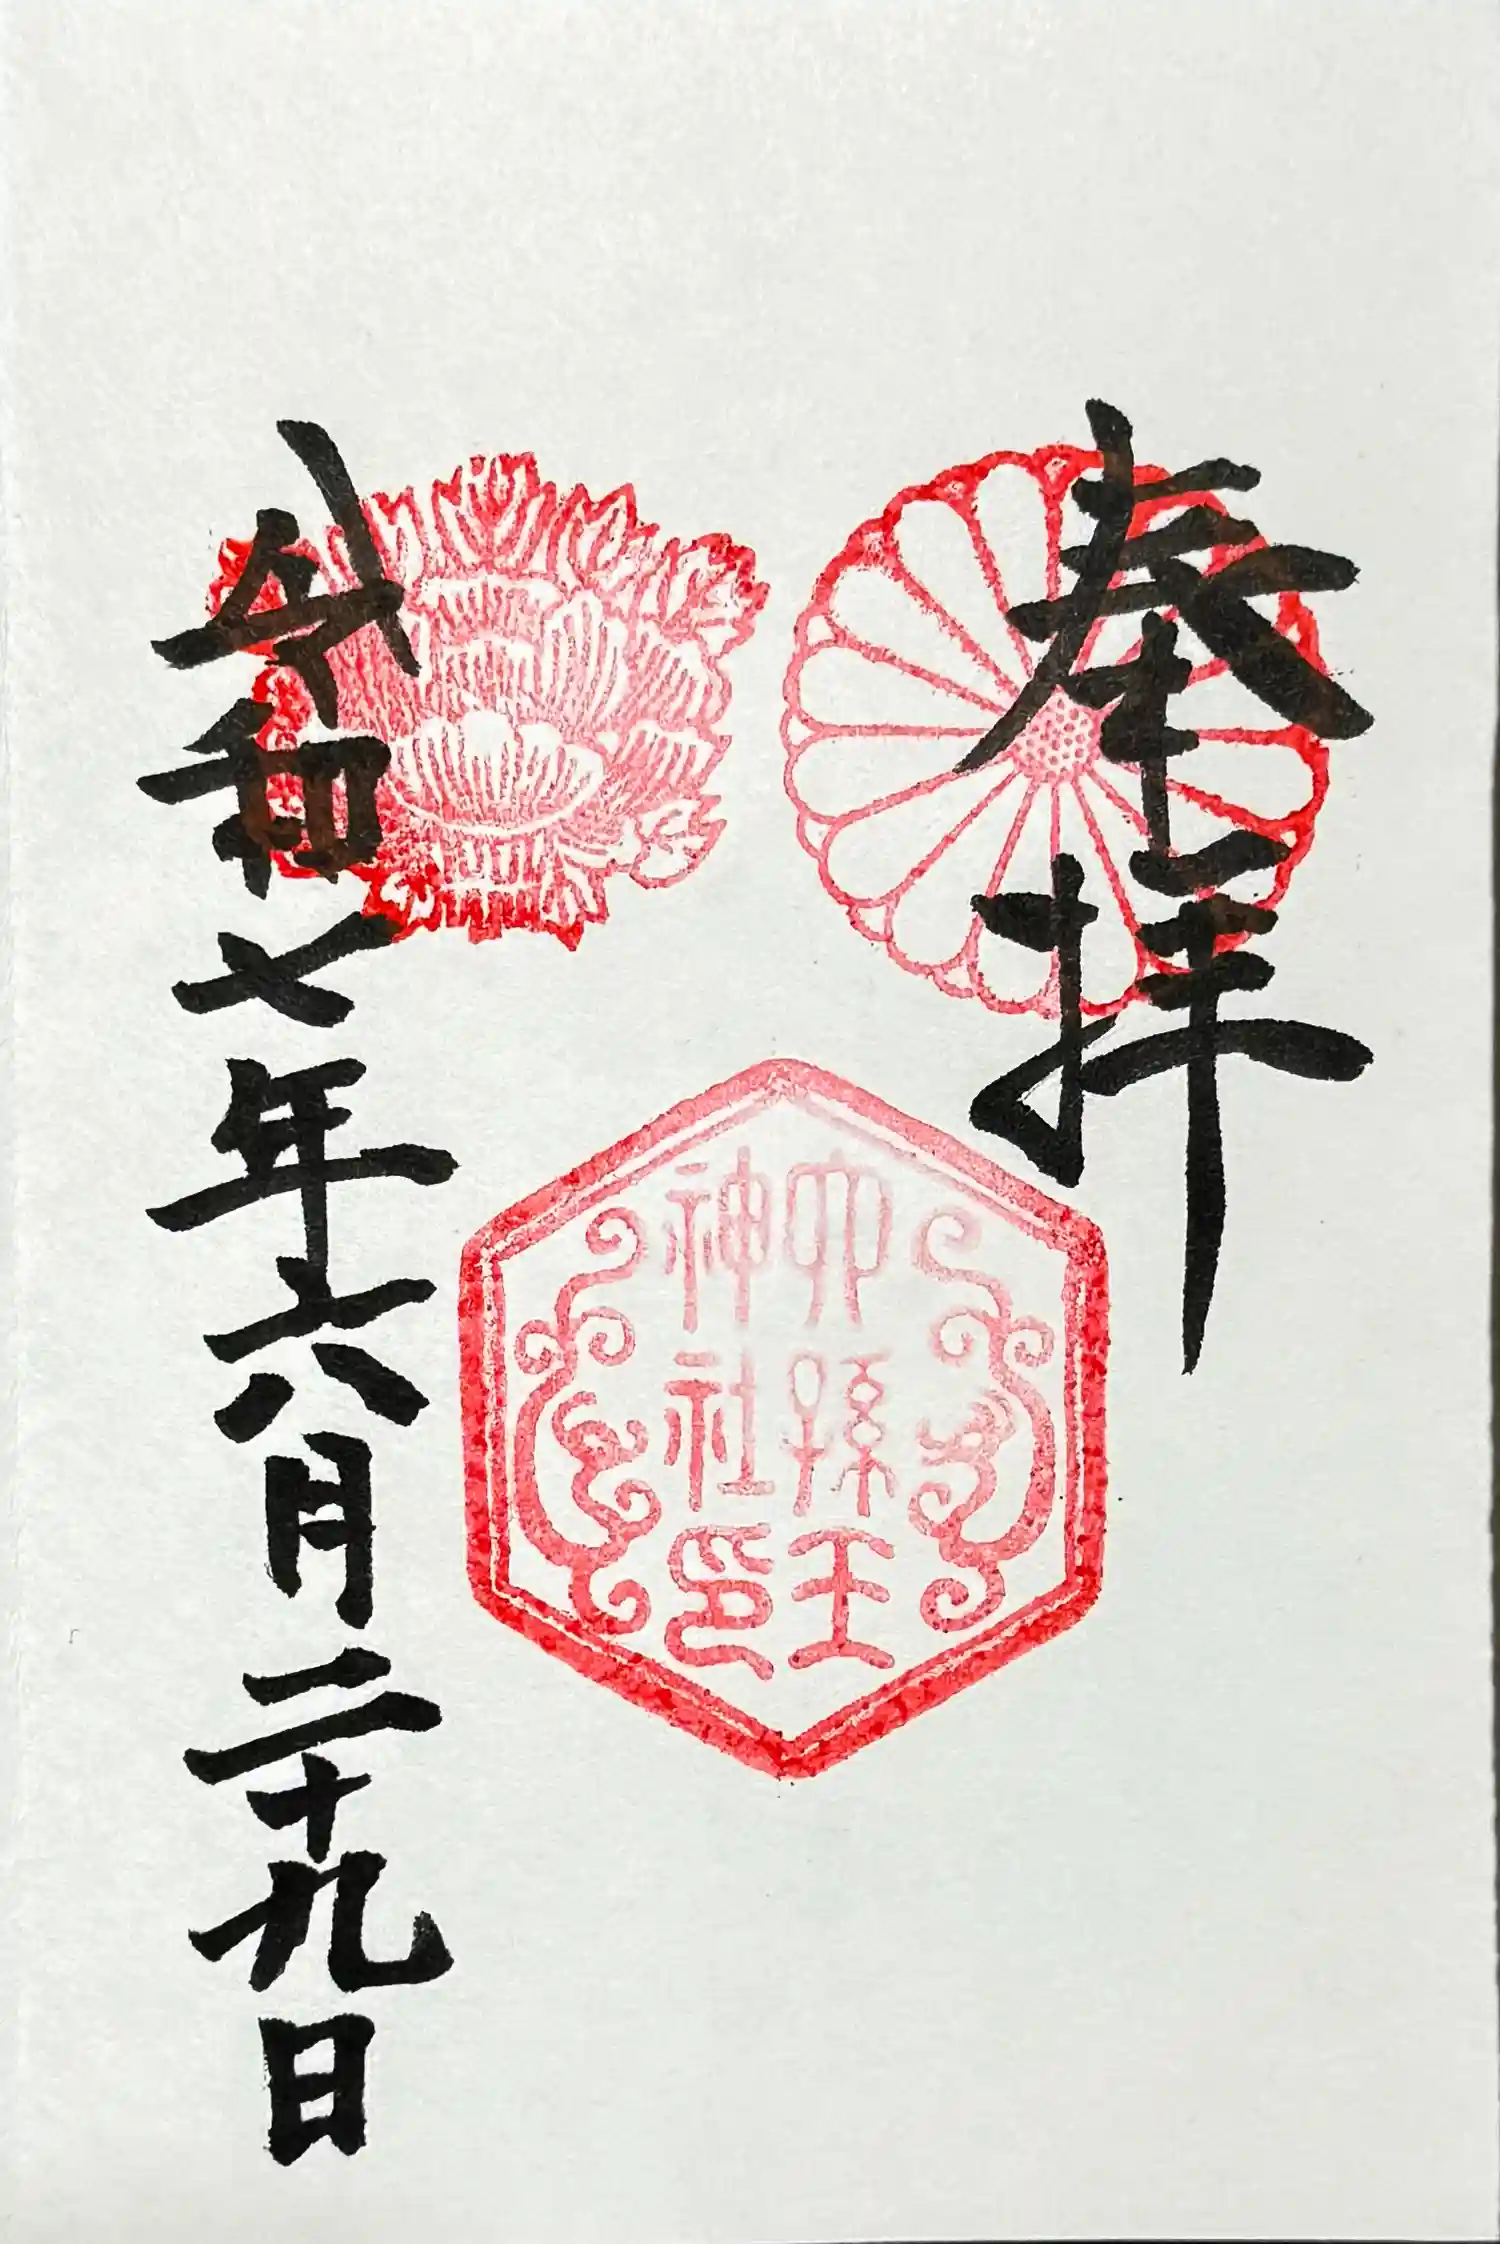 奉拝
六孫王
神社印
令和七年六月二十九日